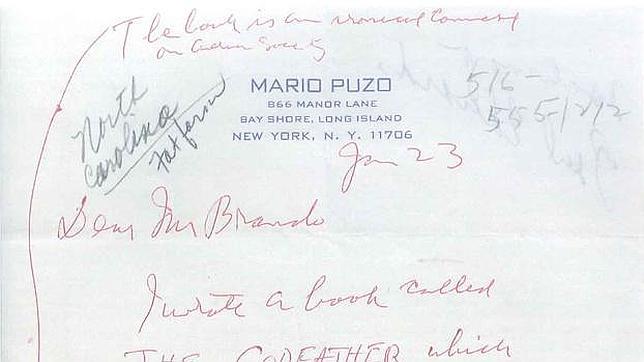 The book is an ironical comment
on American Society
North
Carolina
Fat farm
516-
555-1212
MARIO PUZO
866 MANOR LANE
BAY SHORE, LONG ISLAND
NEW YORK, N. Y. 11706
Jan 23
Dear Mr Brando
I wrote a book called
THE GODFATHER which